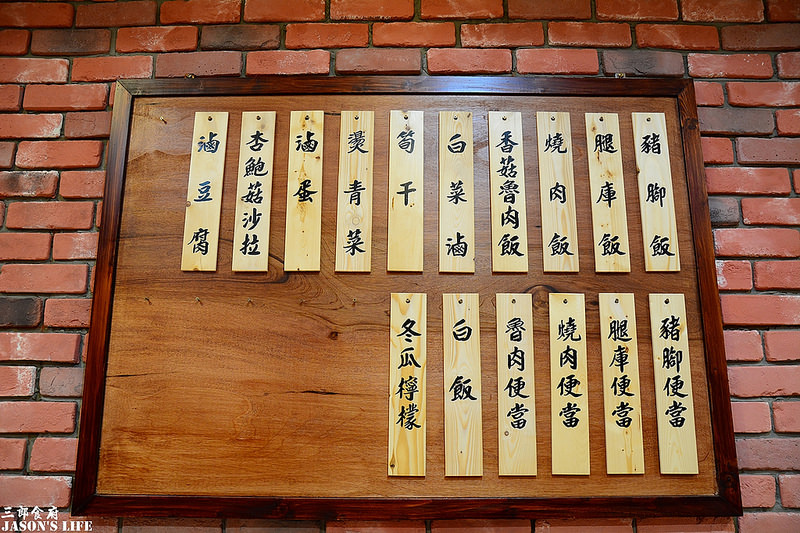 豬腳飯
腿庫飯
燒肉飯
香菇魯肉飯
白菜滷
筍干
燙青菜
滷蛋
杏鮑菇沙拉
滷豆腐
豬腳便當
腿庫便當
燒肉便當
魯肉便當
白飯
冬瓜檸檬
三郎食府
JASON'S LIFE